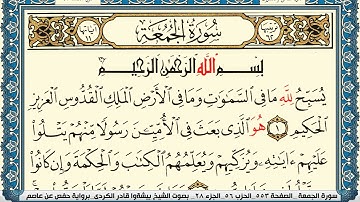 سُورَةُ الْجُمُعَةِ
بِسْمِ اللَّهِ الرَّحْمَٰنِ الرَّحِيمِ
يُسَبِّحُ لِلَّهِ مَا فِي السَّمَٰوَٰتِ وَمَا فِي الْأَرْضِ الْمَلِكِ الْقُدُّوسِ الْعَزِيزِ
الْحَكِيمِ ١ هُوَ الَّذِي بَعَثَ فِي الْأُمِّيِّينَ رَسُولًا مِنْهُمْ يَتْلُوا
عَلَيْهِمْ ءَايَٰتِهِ وَيُزَكِّيهِمْ وَيُعَلِّمُهُمُ الْكِتَٰبَ وَالْحِكْمَةَ وَإِنْ كَانُوا
سورة الجمعة_ الصفحة ٥٥٣_ الحزب ٥٦_ الجزء ٢٨_ بصوت الشيخ بيشةوا قادر الكردي_ برواية حفص عن عاصم